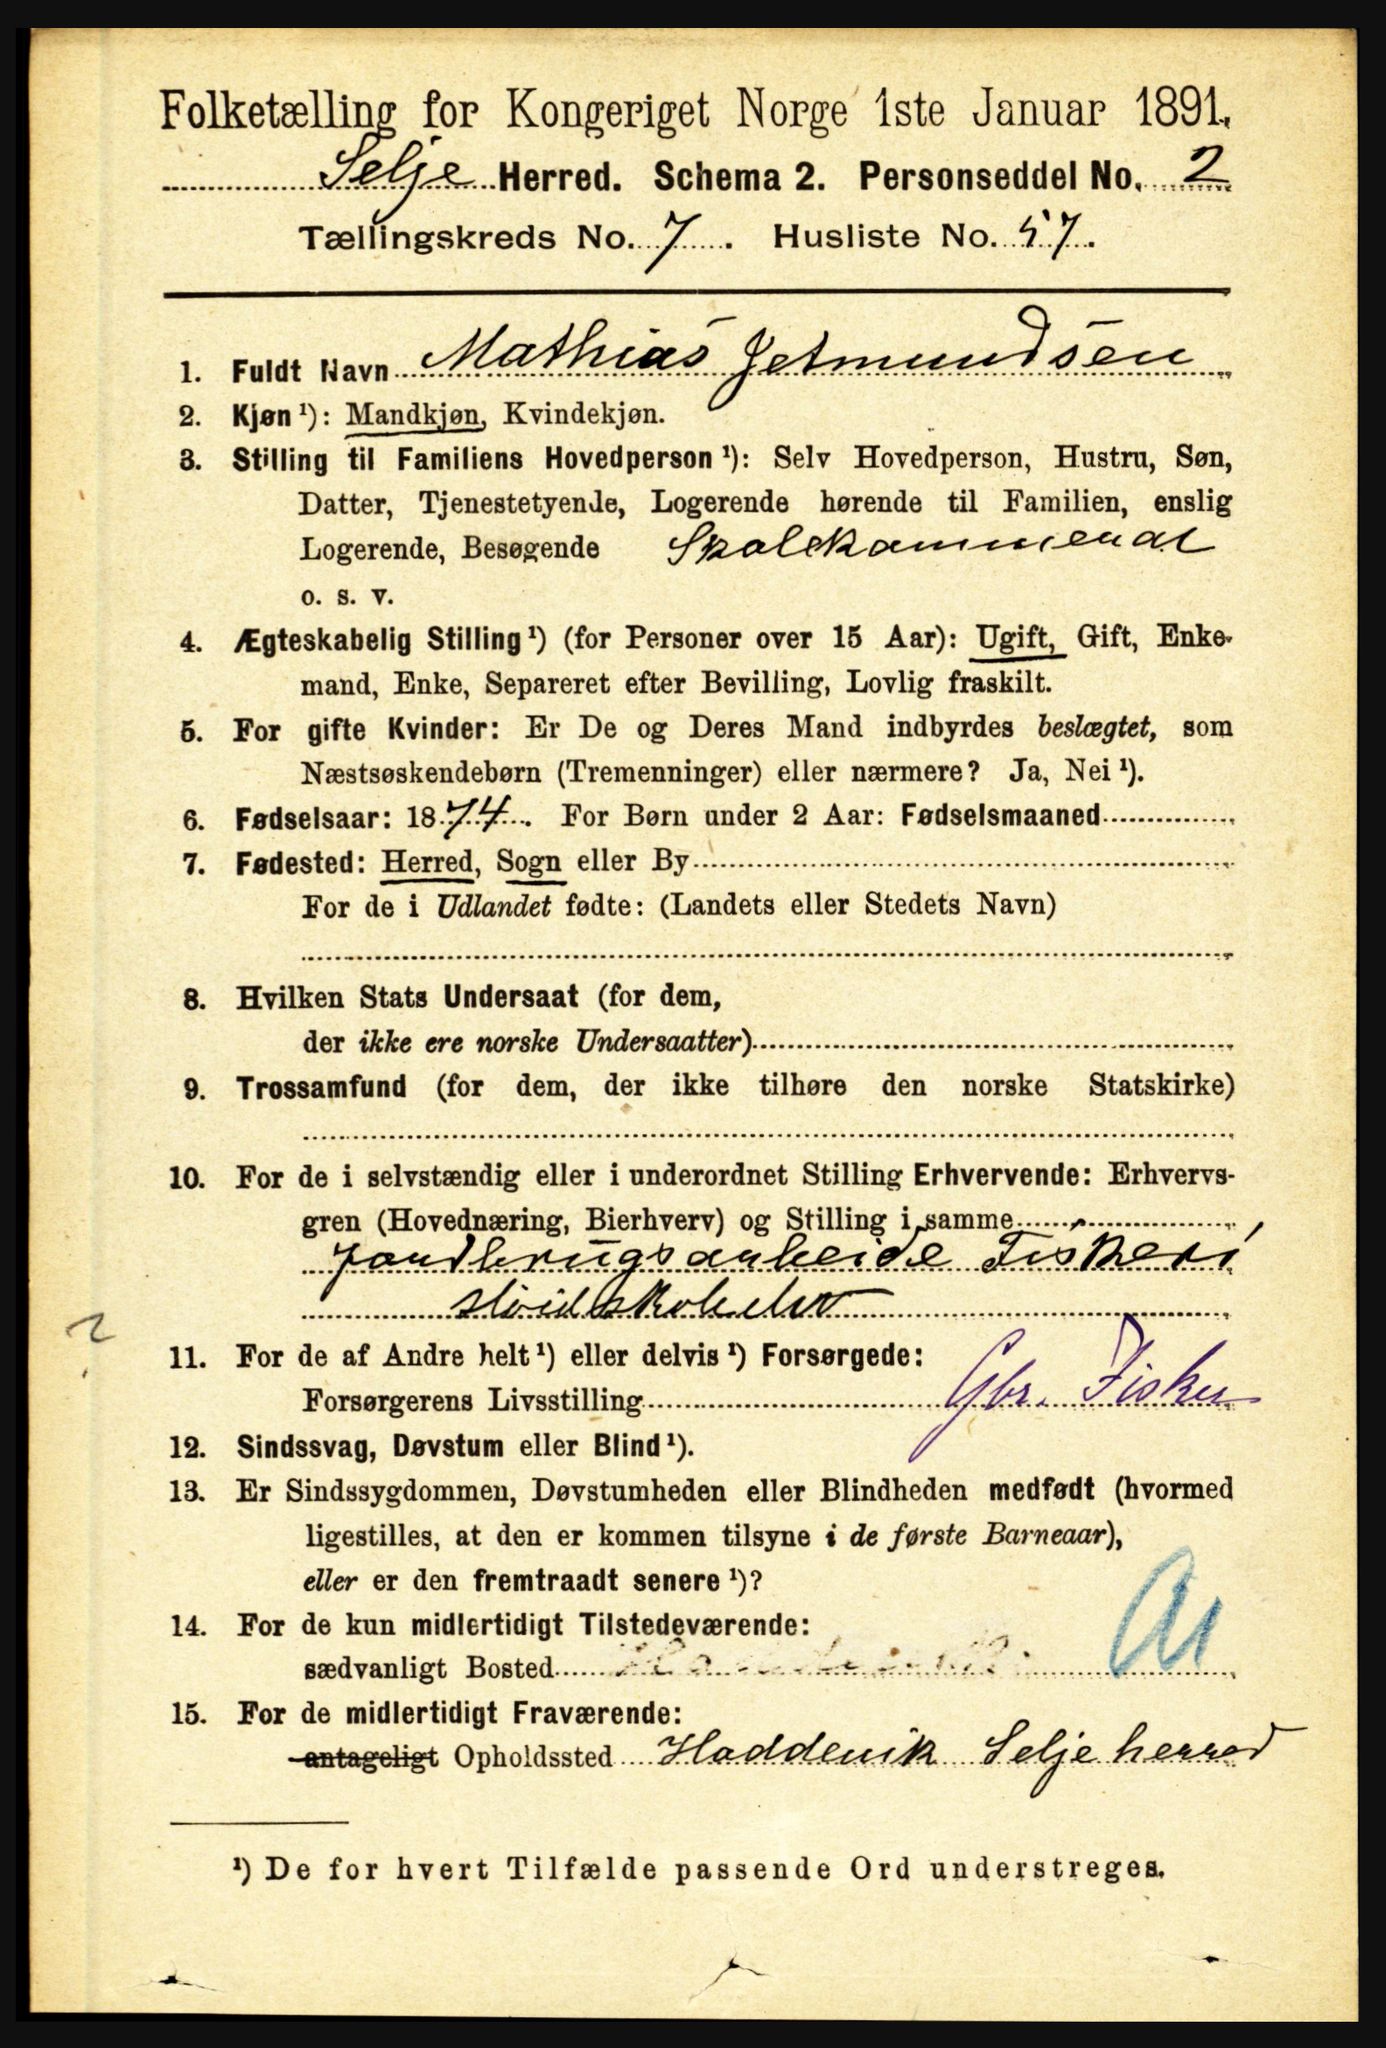 Folketælling for Kongeriget Norge 1ste Januar 1891.
Selje Herred. Schema 2. Personseddel No. 2
Tællingskreds No. 7. Husliste No. 57.
1. Fuldt Navn Mathias Jetmundsen
2. Kjøn ¹): Mandkjøn, Kvindekjøn.
3. Stilling til Familiens Hovedperson ¹): Selv Hovedperson, Hustru, Søn,
Datter, Tjenestetyende, Logerende hørende til Familien, enslig
Logerende, Besøgende
o. s. v.
4. Ægteskabelig Stilling ¹) (for Personer over 15 Aar): Ugift, Gift, Enke-
mand, Enke, Separeret efter Bevilling, Lovlig fraskilt.
5. For gifte Kvinder: Er De og Deres Mand indbyrdes beslægtet, som
Næstsøskendebørn (Tremenninger) eller nærmere? Ja, Nei ¹).
6. Fødselsaar: 1874. For Børn under 2 Aar: Fødselsmaaned
7. Fødested: Herred, Sogn eller By
For de i Udlandet fødte: (Landets eller Stedets Navn)
8. Hvilken Stats Undersaat (for dem,
der ikke ere norske Undersaatter)
9. Trossamfund (for dem, der ikke tilhøre den norske Statskirke)
10. For de i selvstændig eller i underordnet Stilling Erhvervende: Erhvervs-
gren (Hovednæring, Bierhverv) og Stilling i samme
Jordbrugsarbeide Fiskeri
2
11. For de af Andre helt ¹) eller delvis ¹) Forsørgede:
Forsørgerens Livsstilling Gbr. Fisker
12. Sindssvag, Døvstum eller Blind ¹).
13. Er Sindssygdommen, Døvstumheden eller Blindheden medfødt (hvormed
ligestilles, at den er kommen tilsyne i de første Barneaar),
eller er den fremtraadt senere ¹)?
14. For de kun midlertidigt Tilstedeværende:
sædvanligt Bosted
15. For de midlertidigt Fraværende:
antageligt Opholdssted Haddevik Selje herred
¹) De for hvert Tilfælde passende Ord understreges.